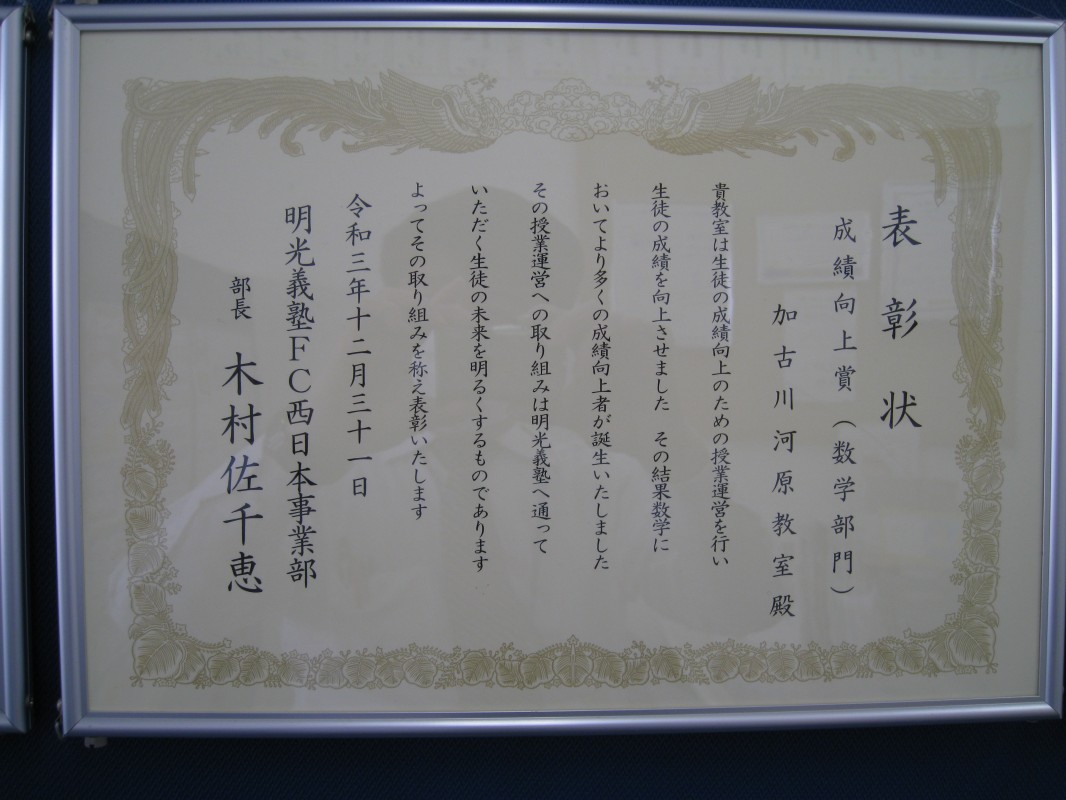 表彰状
成績向上賞（数学部門）
加古川河原教室殿
貴教室は生徒の成績向上のための授業運営を行い
生徒の成績を向上させました　その結果数学に
おいてより多くの成績向上者が誕生いたしました
その授業運営への取り組みは明光義塾へ通って
いただく生徒の未来を明るくするものであります
よってその取り組みを称え表彰いたします
令和三年十二月三十一日
明光義塾ＦＣ西日本事業部
部長　木村佐千恵